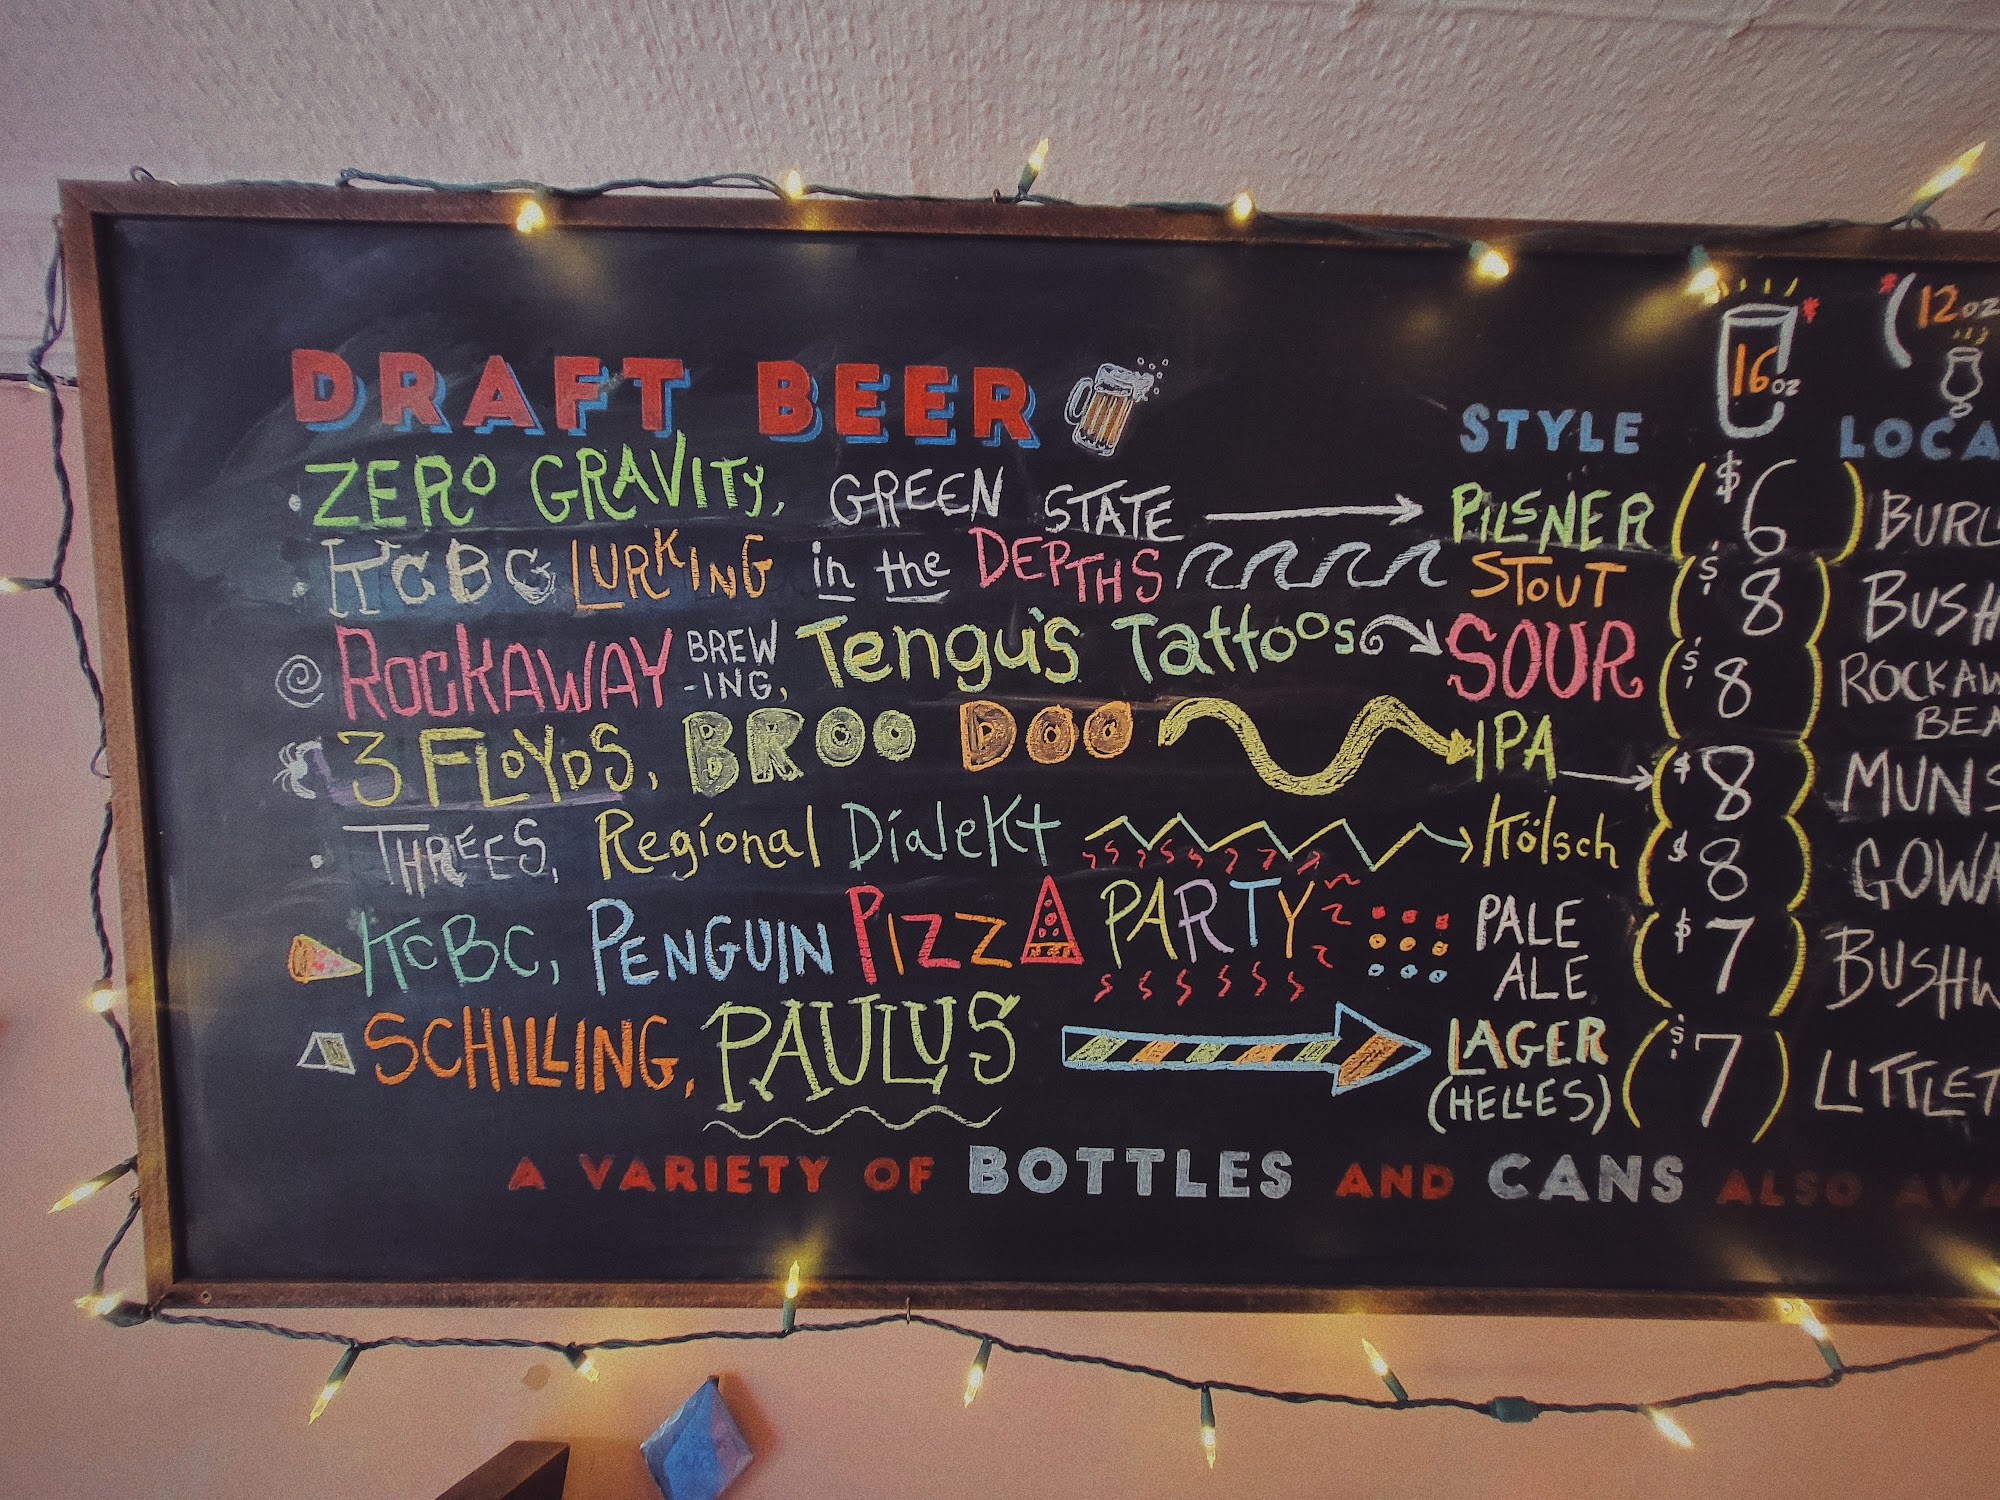 16oz * * (12oz
DRAFT BEER STYLE LOCA
ZERO GRAVITY, GREEN STATE PILSNER ($6) BURL
KCBC LURKING in the DEPTHS STOUT ($8) BUSH
ROCKAWAY BREW-ING, Tengu's Tattoos SOUR ($8) ROCKAW BEA
3 FLOYDS, BROO DOO IPA ($8) MUNS
THREES, Regional Dialekt Kölsch ($8) GOWA
KCBC, PENGUIN PIZZA PARTY PALE ALE ($7) BUSHW
SCHILLING, PAULUS LAGER (HELLES) ($7) LITTLET
A VARIETY OF BOTTLES AND CANS ALSO AVA